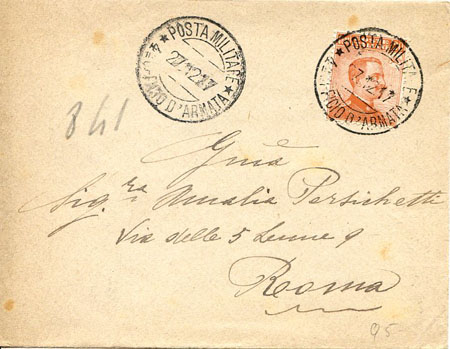 ★ POSTA MILITARE ★
UFFICIO D'ARMATA
27.12.17
★ POSTA MILITARE ★
UFFICIO D'ARMATA
7.12.17
841
Sig.ra Amalia Persichetti
Via delle 5 Lune 9
Roma
95